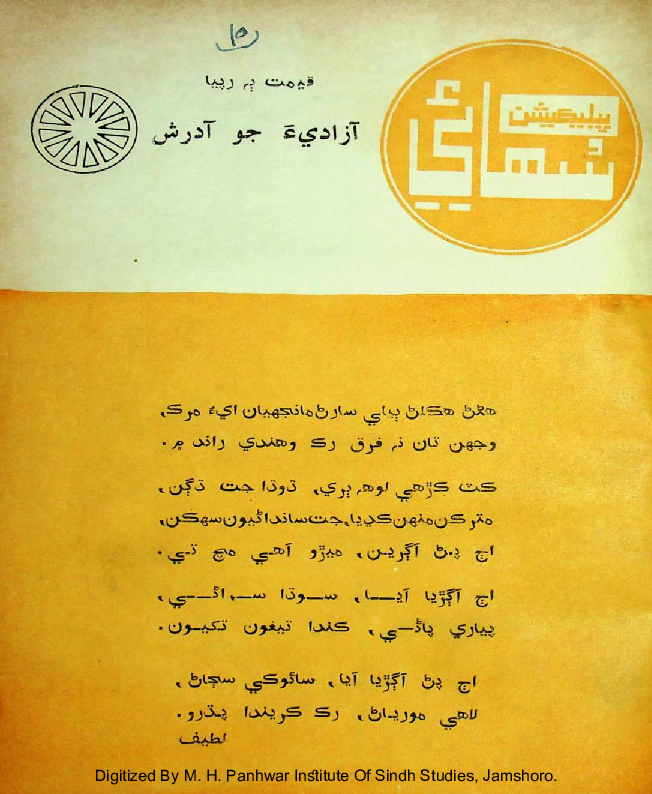 ۱۵
قيمت ٻہ رپيا
آزاديءَ جو آدرش
پبليڪيشن
سُهائي
هڻڻ هڪلڻ ٻيلي سارڻ مانجهيان ايءُ مرڪ،
وجهن تان نہ فرق رڪ وهندي راند ۾.
ڪٽ ڪڙهي لوهہ ٻري، ڌوڌا جت ڌڳن،
مترڪن منهن ڪڍيا، جت سانداڻيون سهڪن،
اڄ پڻ آڳرين، ميڙو آهي مچ تي.
اڄ آڳڙيا آيا، سوڌا سراڻي،
پياري پاڻي، ڪندا تيغون تکيون.
اڄ پڻ آڳڙيا آيا، سائوڪي سڄاڻ،
لاهي موريان، رڪ ڪريندا پڌرو.
لطيف
Digitized By M. H. Panhwar Institute Of Sindh Studies, Jamshoro.